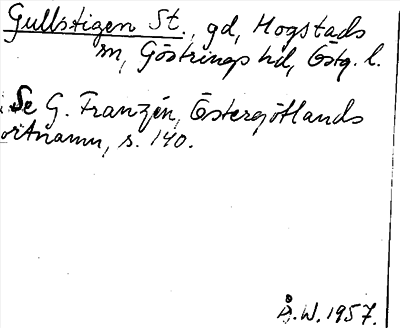 Gullstigen St., gd, Hogstads
sn, Göstrings hd, Östg. l.
Se G. Franzén, Östergötlands
ortnamn, s. 140.
Å.W. 1957.